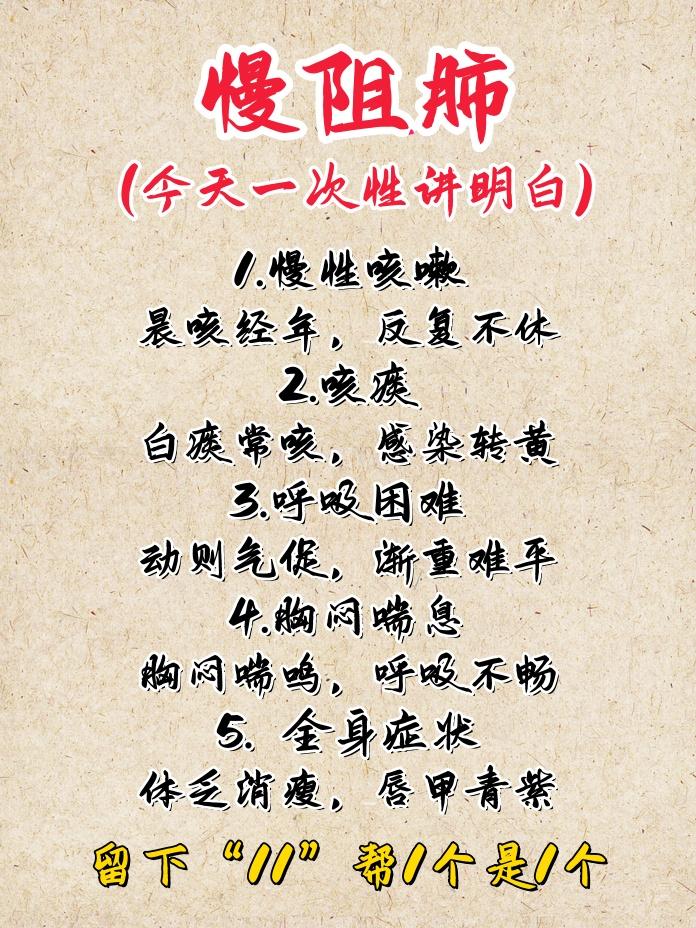 慢阻肺
(今天一次性讲明白)
1.慢性咳嗽
晨咳经年，反复不休
2.咳痰
白痰常咳，感染转黄
3.呼吸困难
动则气促，渐重难平
4.胸闷喘息
胸闷喘鸣，呼吸不畅
5. 全身症状
体乏消瘦，唇甲青紫
留下“11”帮1个是1个